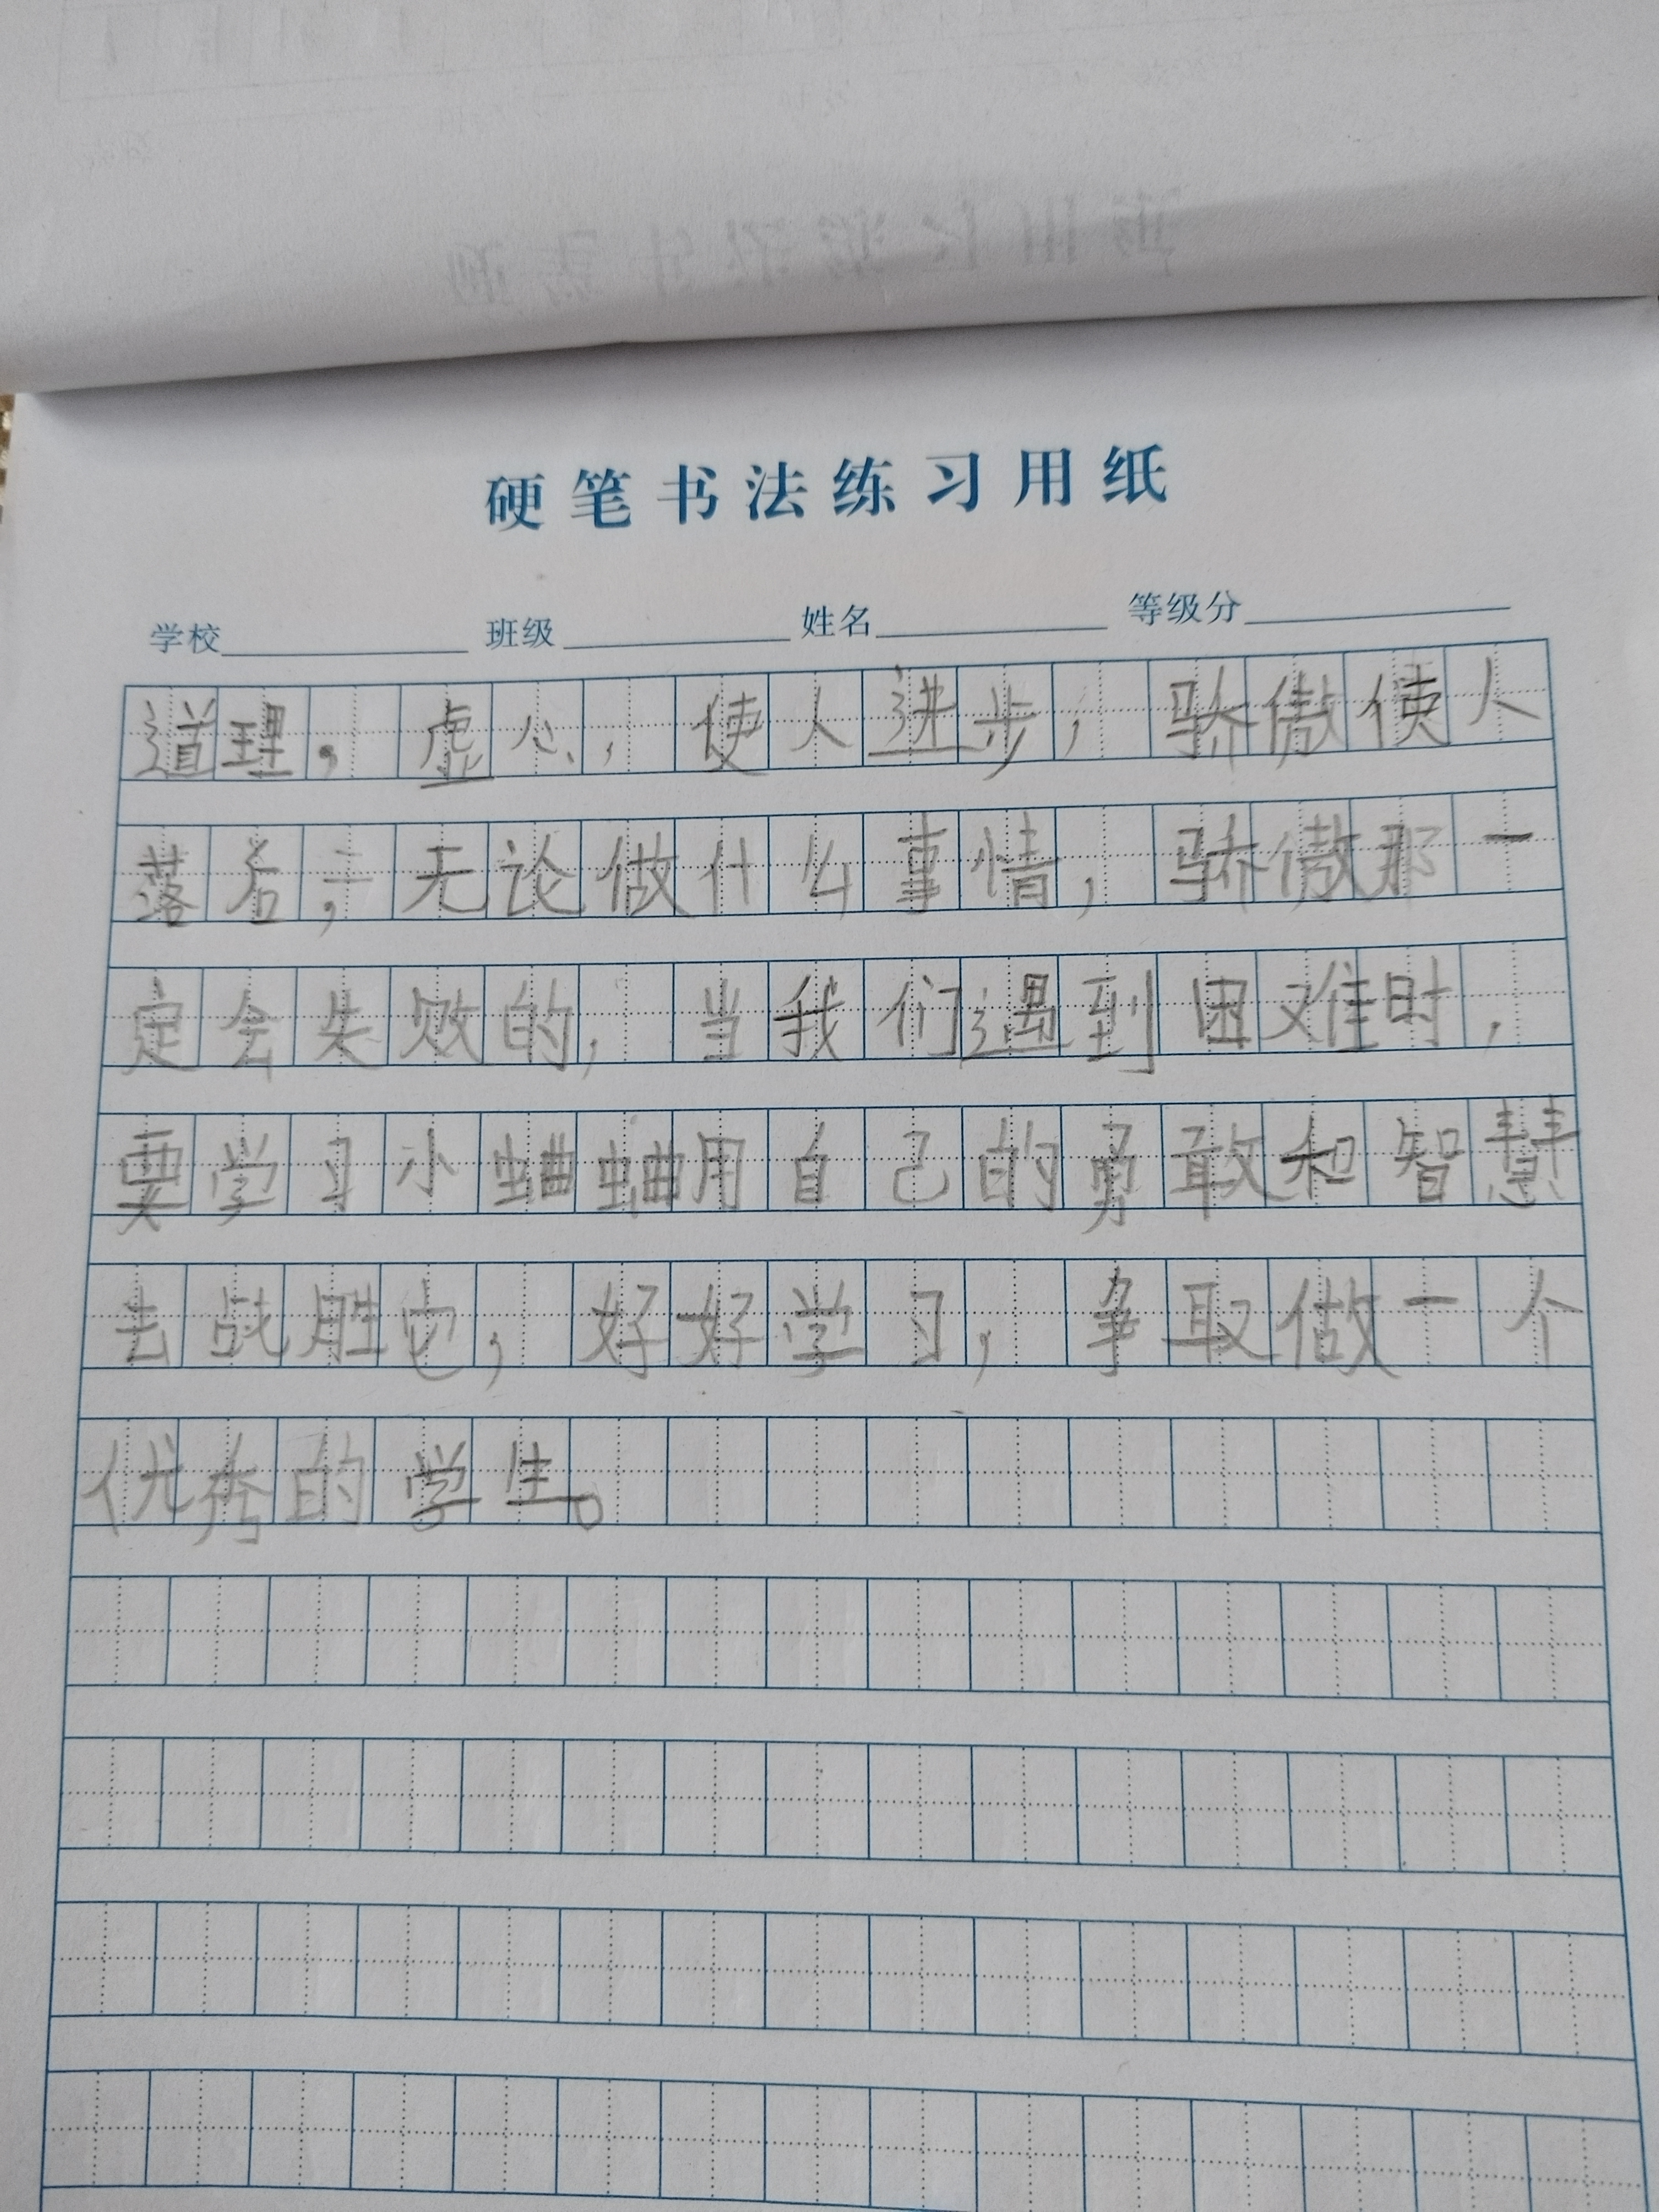 硬笔书法练习用纸
学校 班级 姓名 等级分
道理,虚心,使人进步,骄傲使人
落后,无论做什么事情,骄傲那一
定会失败的,当我们遇到困难时,
要学习小蛐蛐用自己的勇敢和智慧
去战胜它,好好学习,争取做一个
优秀的学生。